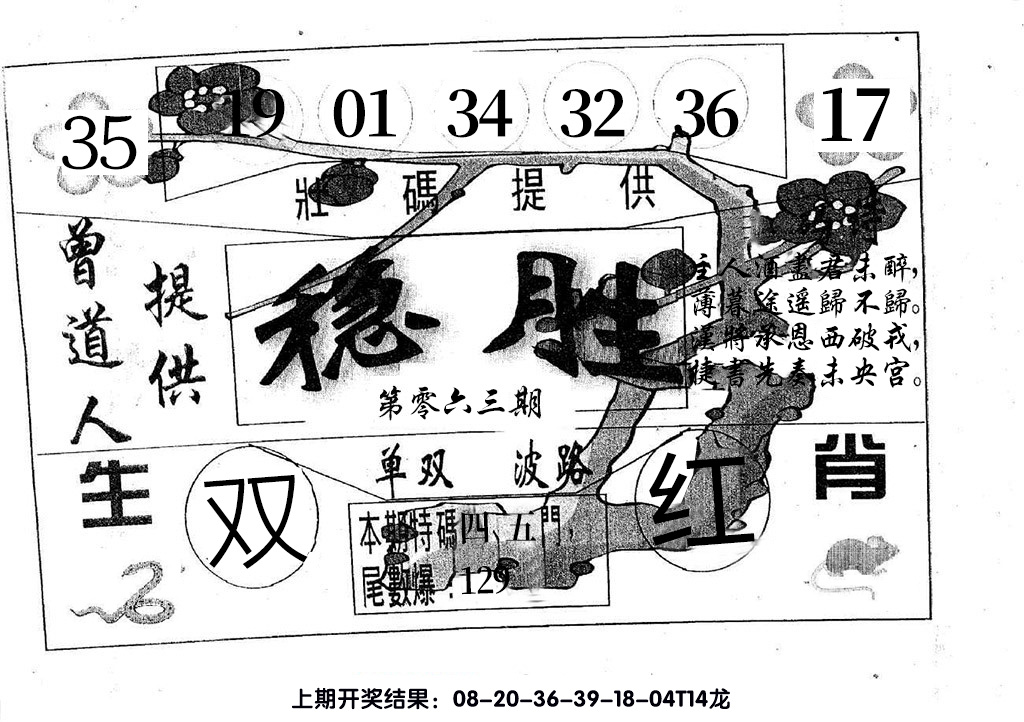 35 19 01 34 32 36 17
壯碼提供
曾道人
提供
稳胜
第零六三期
主人酒盡君未醉,
薄暮途遥歸不歸。
漢將承恩西破戎,
捷書先奏未央宫。
单双 波路
生肖
双
红
本期特碼四、五門,
尾數爆:129
上期开奖结果:08-20-36-39-18-04T14龙